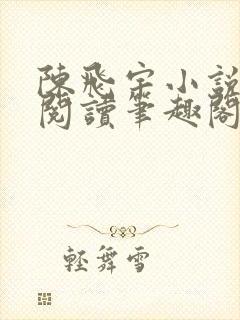 陳飛宇小說
閱讀筆趣閣
輕舞雪